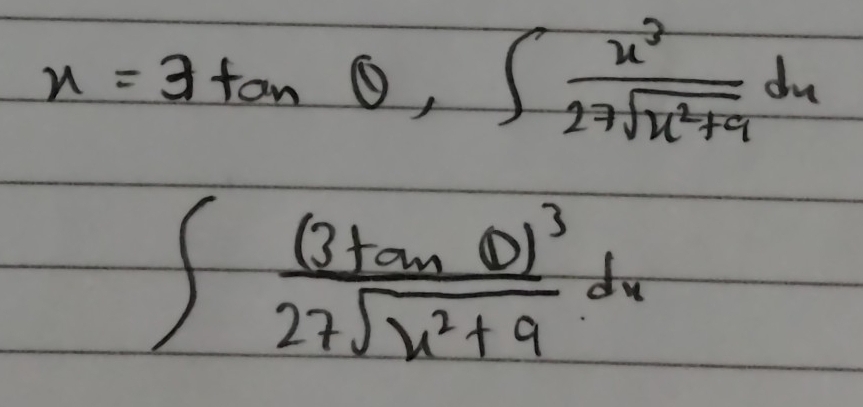 x = 3 tan θ, ∫ x³/(27√(x²+9)) dx
∫ (3 tan θ)³/(27√(x²+9)) dx